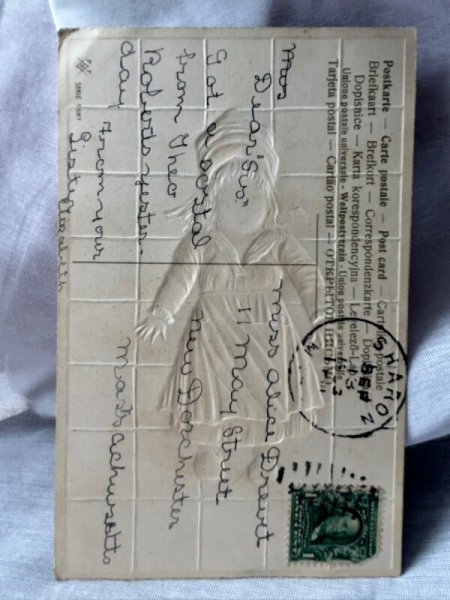 SERIE 5587
Postkarte — Carte postale — Post card — Cartolina postale
Briefkaart — Brefkort — Correspondenzkarte —
Dopisnice — Karta korespondencyjna — Levelező-Lap
Unione postale universale - Weltpostverein - Union postale universelle
Tarjeta postal — Cartão postal — ОТКРЫТОЕ ПИСЬМО
SHARON
SEP 2
Dear "Sis"
Got a postal
from Theo
Roberts yester-
day
From your
Sister Elizabeth
Miss Alice
11 May Street
New Dorchester
Massachusetts